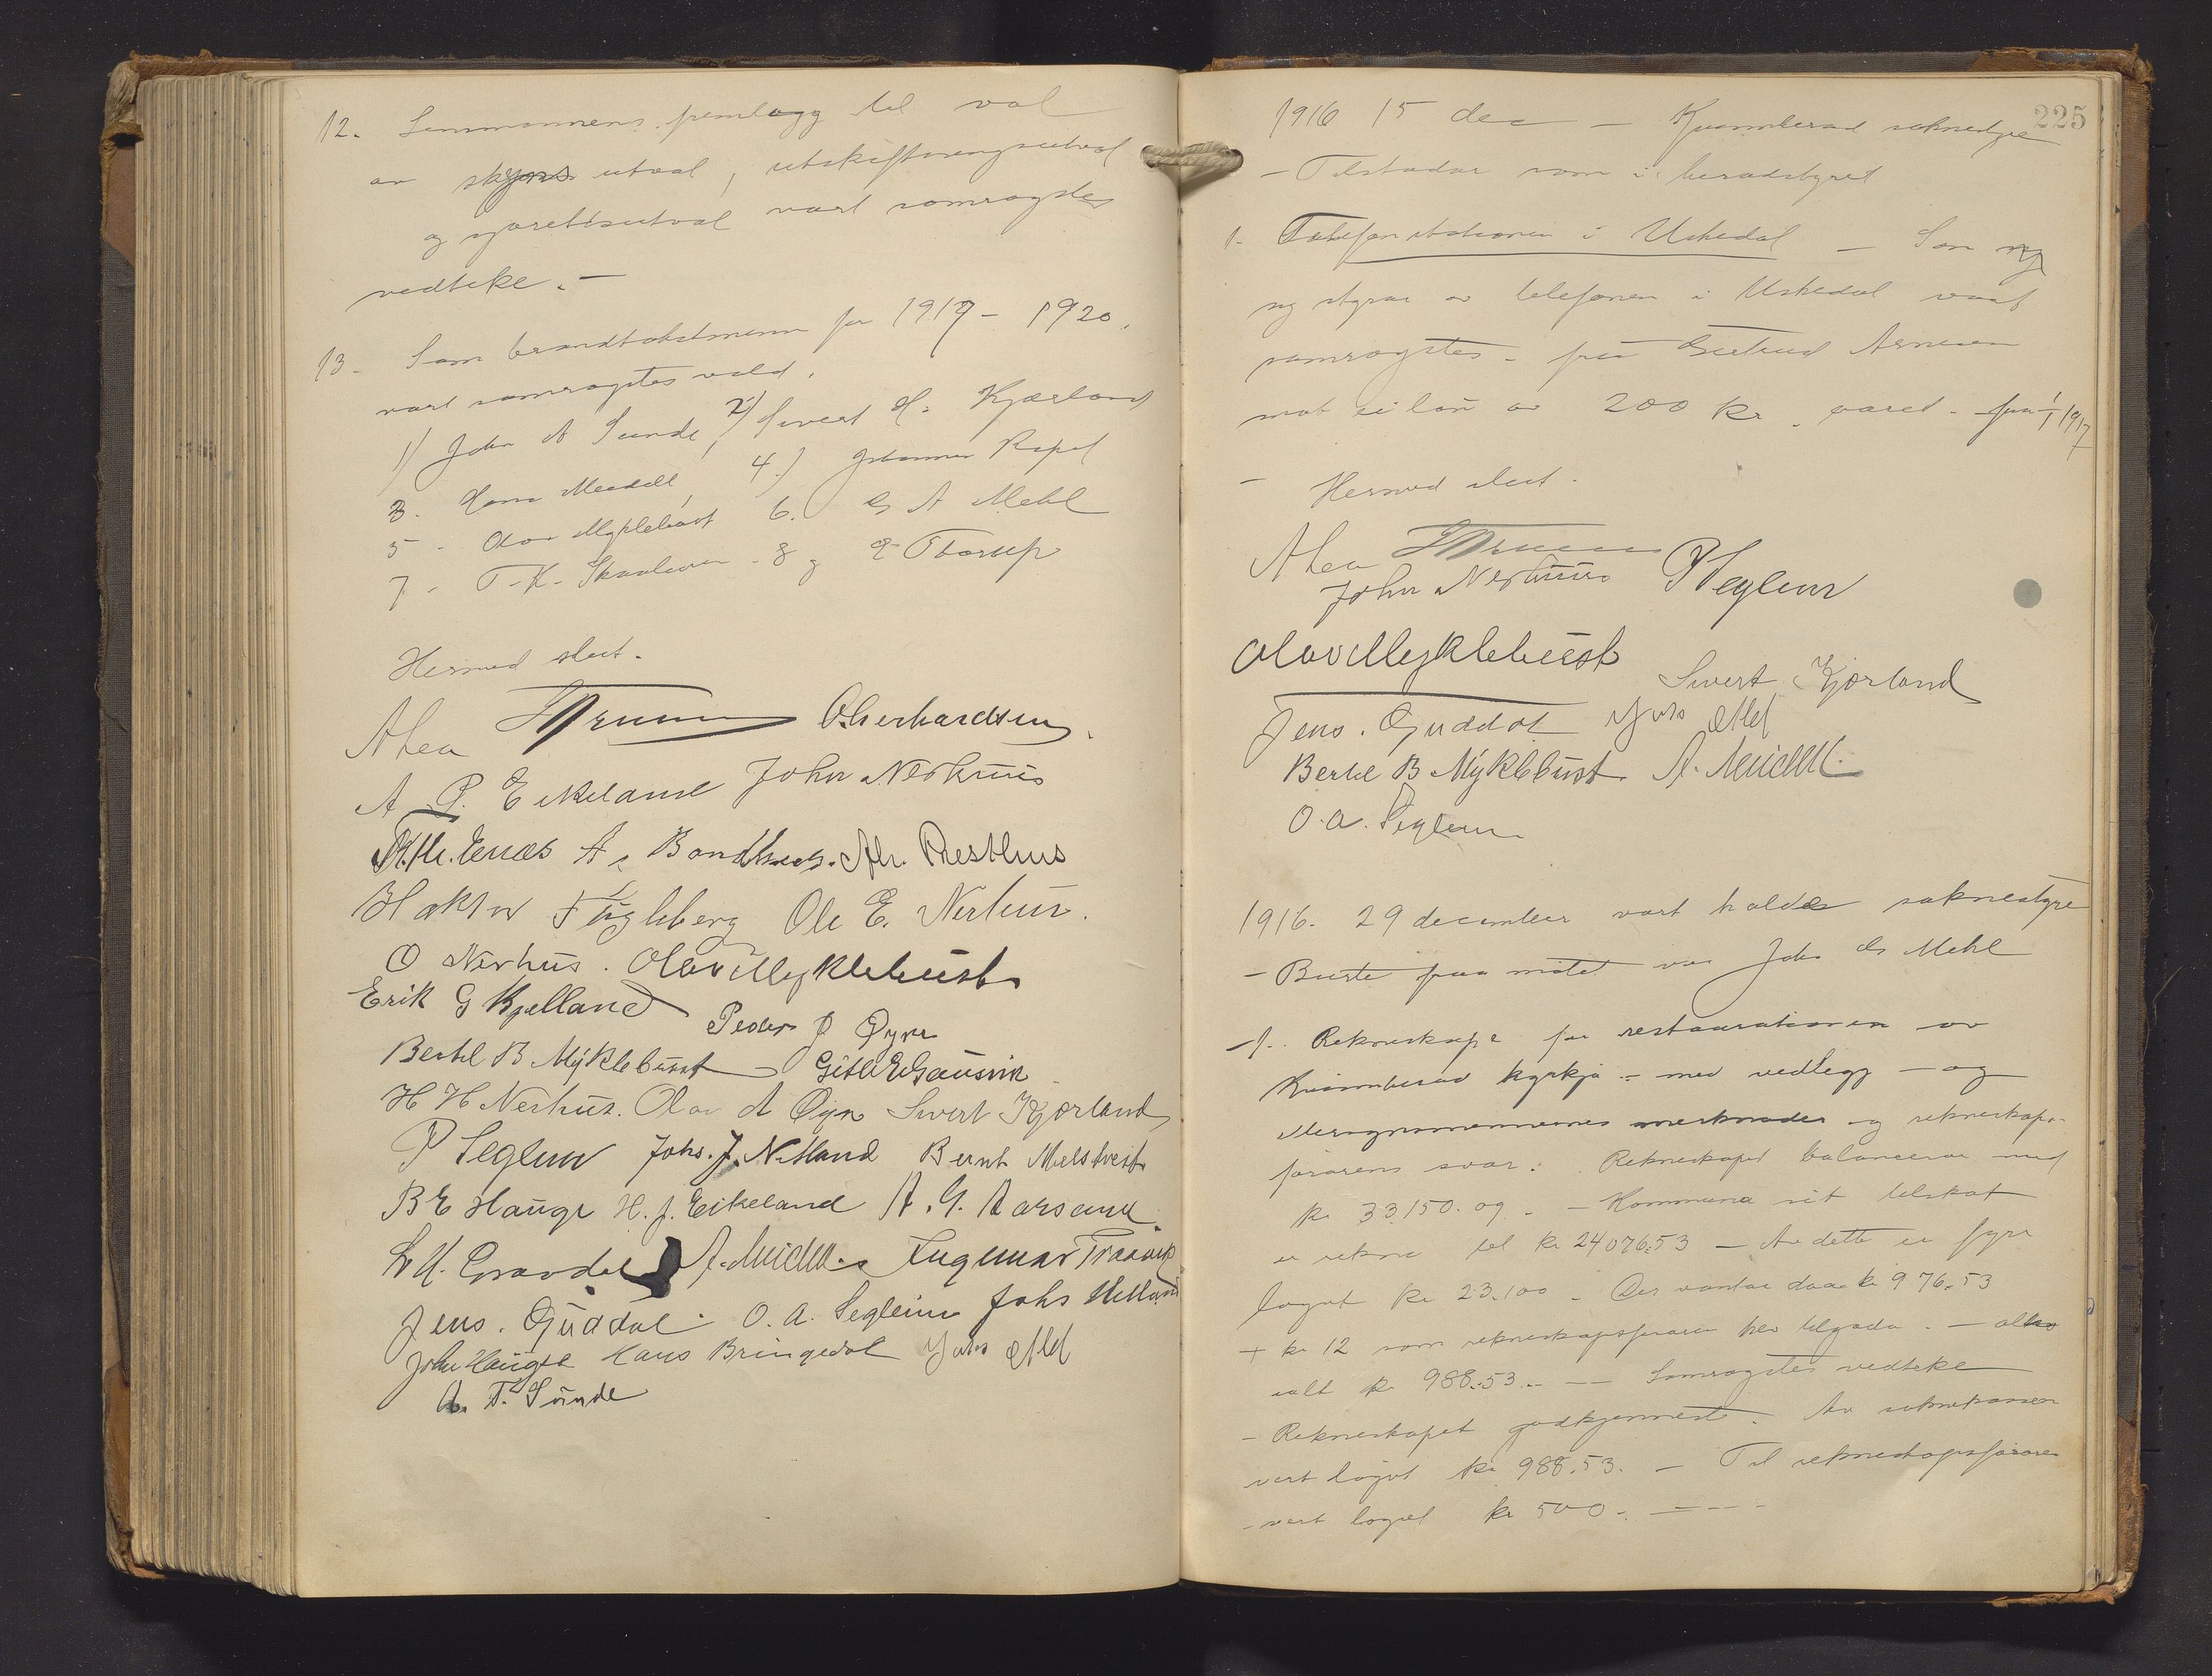 12. Lensmannens framlegg til val
av skjøns utval, utskiftningsutval
og sjorettsutval vart samrøystes
vedteke. —
13. Som brandtakstmenn for 1917 - 1920.
vart samrøystes vald.
1) John A Sunde, 2) Sivert H. Kjærland
3. Hans Meidell 4.) Johannes Røpel
5. Olav Myklebust 6. G A Mehl
7. T. K. Skaaluren. 8 og E Thorup
Hermed slut.
Ahea O. Gerhardsen
A. P. Eikeland John Nerhus
Enæs A Bondhus. Presthus
Håkon Fuglberg Ole E. Nerhus.
O Nerhus. Olav Myklebust
Erik G Kjelland Peder J Øyre
Bertel B. Myklebust Gitle E Gausvik
H H Nerhus. Olav A Øyre Sivert Kjørland
P Seglem Johs. J. Netland Bernt Melstveit
B E Hauge H. J. Eikeland A. G. Aarsand
L H. Gravdal A. Meidell. Ingemar Traavik
Jens. Guddal. O. A. Seglem Johs Helland
John Haugse Hans Bringedal Johs Mel
A. T. Sunde
225
1916 15 dec — Kvamherad soknestyre
- Tilstadar som i heradstyret
1. Telefonstationen i Uskedal — Som ny
ny styrar av telefonen i Uskedal vart
samrøystes frú Gjertrud Arnesen
mot ei løn av 200 kr. aaret. fraa 1/1 1917
- Hermed slut.
Ahea
John Nerhus P Seglem
Olav Myklebust
Sivert Kjørland
Jens. Guddal Johs Mel
Bertel B Myklebust. A. Meidell.
O. A. Seglem
1916. 29 december vart halde soknestyre
- Burte fraa møtet var Johs G Mehl
1. Rekneskape for restaurationen av
Kvamherad kyrkja - med vedlegg - og
revisjonsmennenes merknader og rekneskaps-
førarens svar. Rekneskapet balancerar med
kr 33150.09. — Kommuna sit tilskot
er rekna til kr 24076.53 — Av dette er fyrr
løyvt kr 23.100 - Der vantar daa kr 976.53
+ kr 12 som rekneskapsføraren hev tilgode. — alt
ialt kr 988.53. — Samrøystes vedteke
- Rekneskapet godkjennest. Av soknekassen
vert løyvt kr 988.53. — Til rekneskapsføraren
- vert løyvt kr 500. —